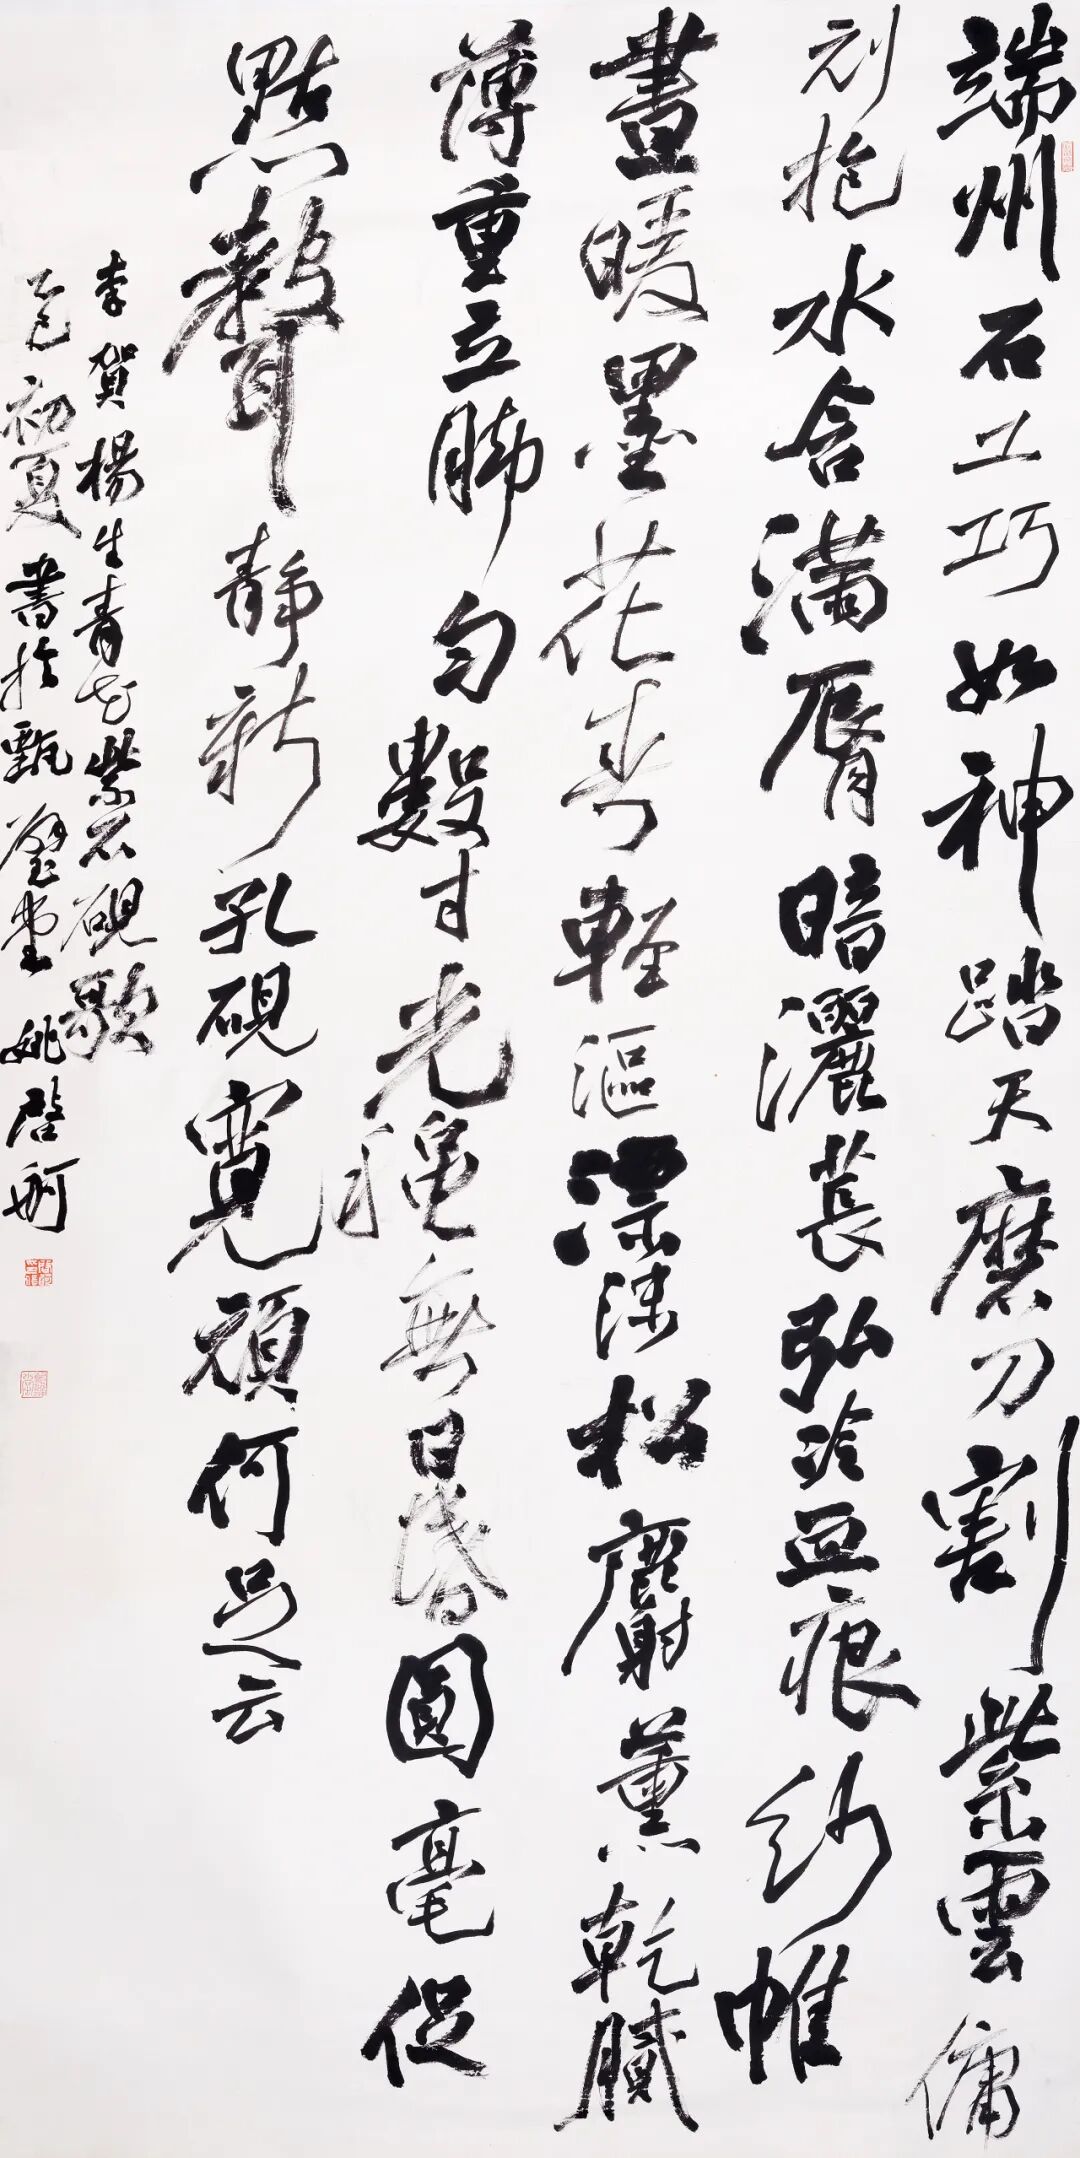 端州石工巧如神踏天磨刀割紫雲傭
刓抱水含滿脣暗灑萇弘冷血痕紗帷
晝暖墨花春輕漚漂沫松麝薰乾膩
薄重立腳勻數寸光穐無日昏圓毫促
點聲靜新孔硯寬頑何足云
李賀楊生青花紫石硯歌
乙巳初夏書於甄璧堂姚啓舸